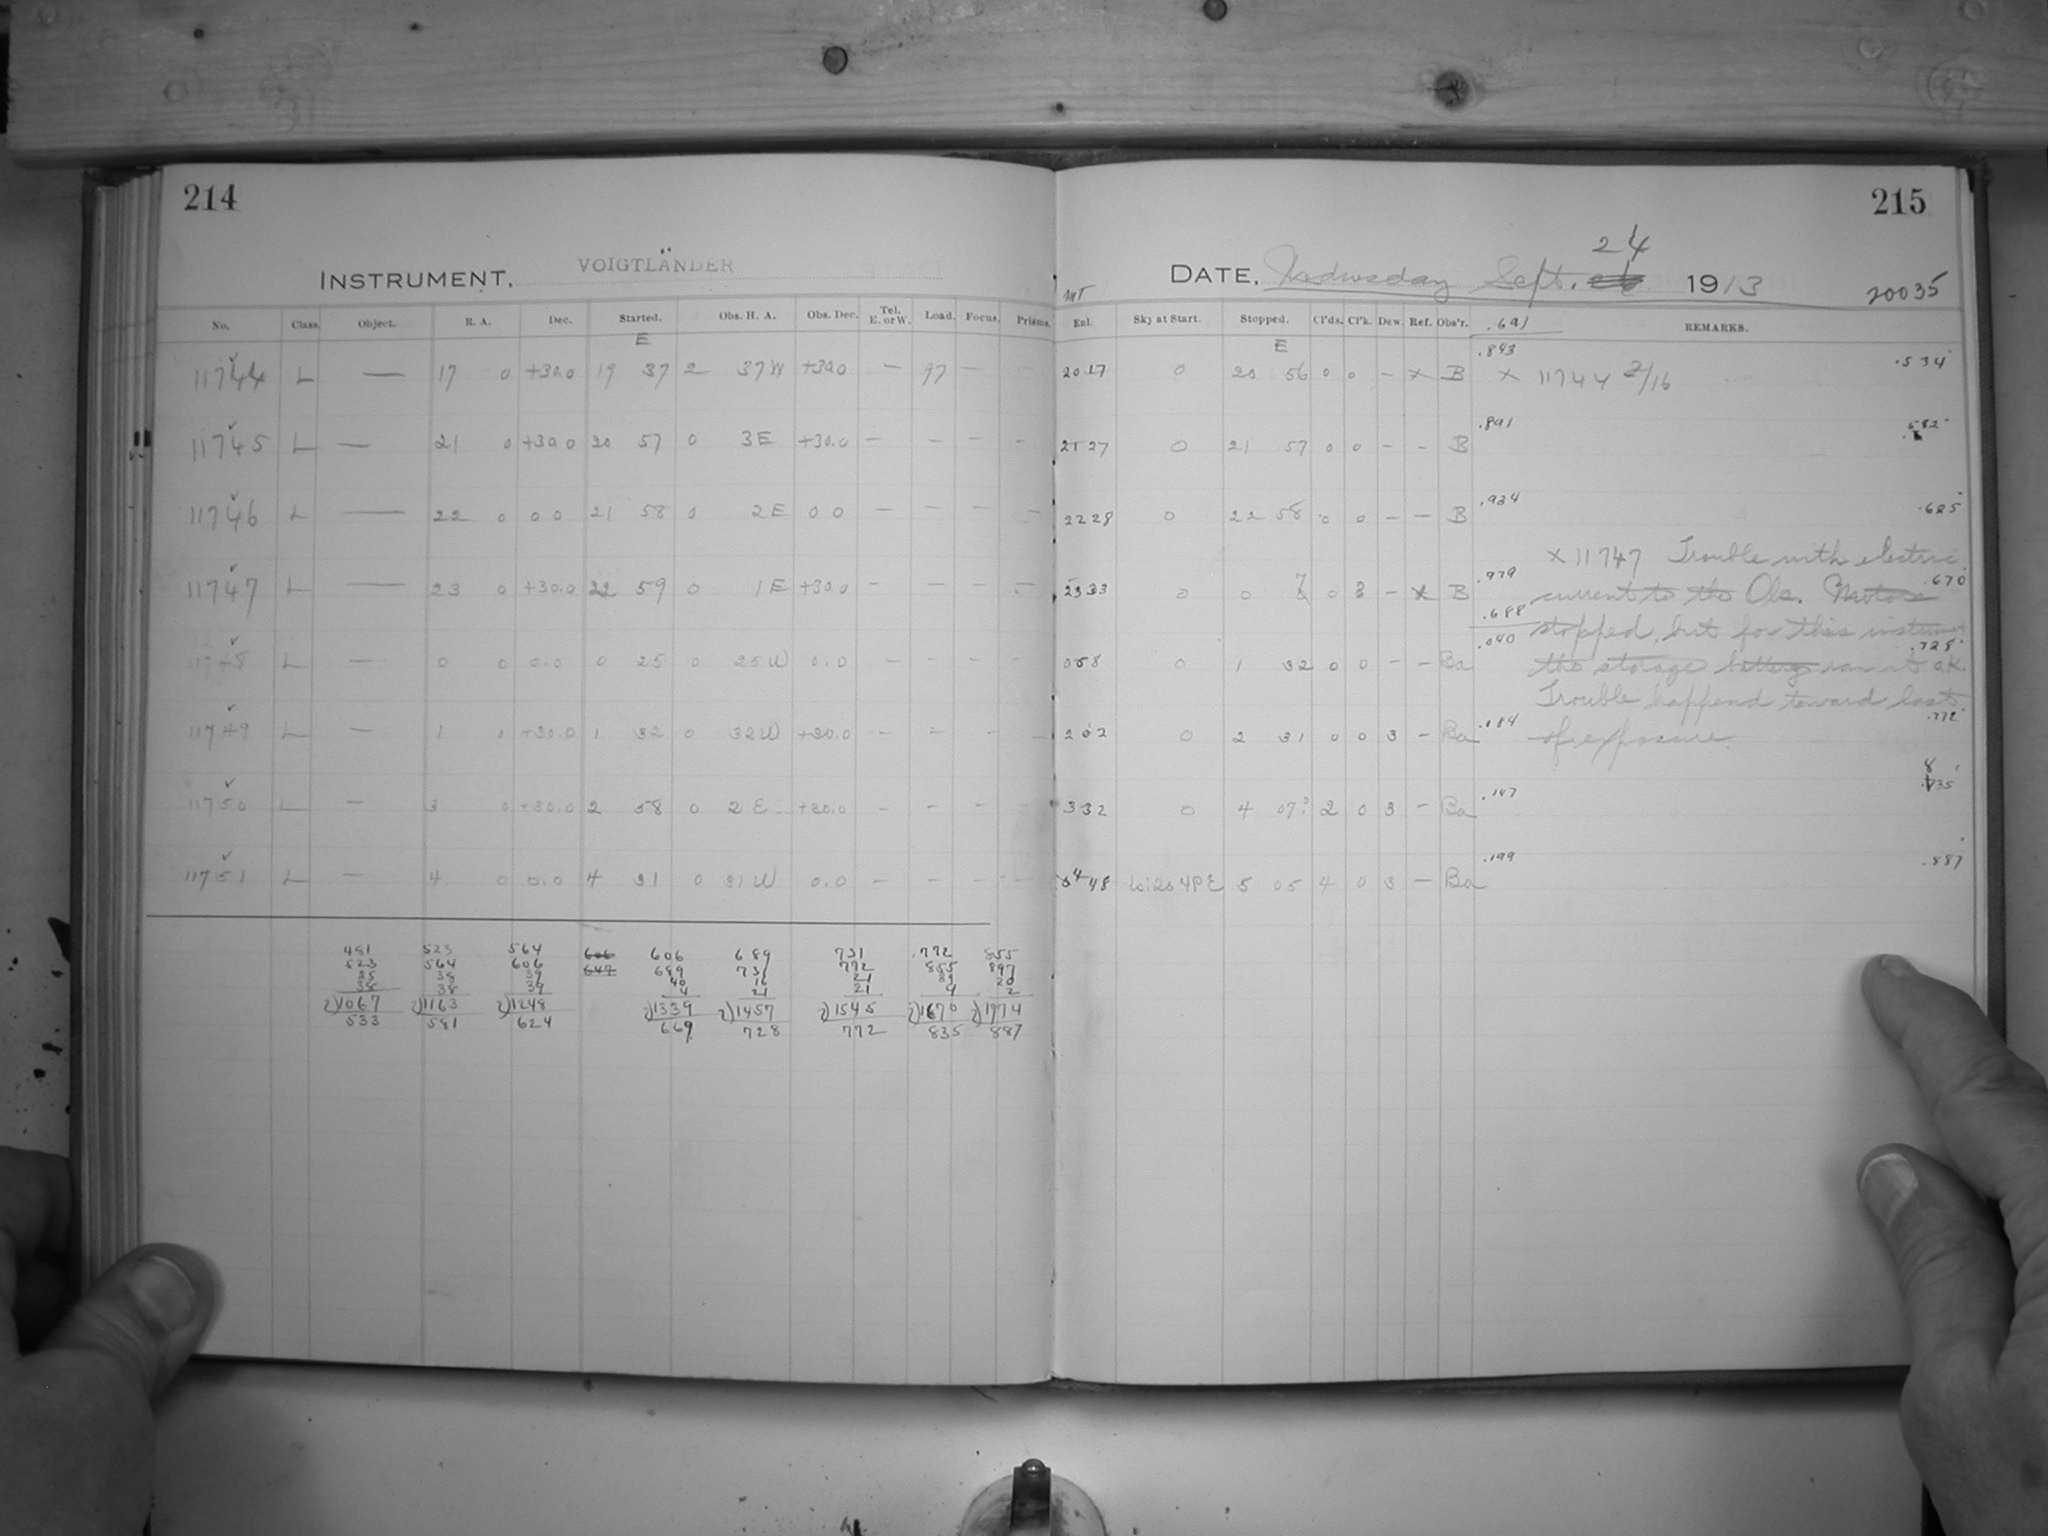 214
215
INSTRUMENT. VOIGTLÄNDER
DATE. Wednesday Sept. 24 1913 20035
No. Class. Object. R. A. Dec. Started. Obs. H. A. Obs. Dec. Tel. E. or W. Load. Focus. Prisms.
MT
Exl. Sky at Start. Stopped. Cl'ds. Cl'k. Dew. Ref. Obs'r. .691 REMARKS.
E
E
11744 L — 17 0 +30.0 19 37 2 37W +30.0 — 97 — — 2017 0 20 56 0 0 - x B .843 x 11744 2/16 .534
11745 L — 21 0 +30.0 20 57 0 3E +30.0 — — — — 2127 0 21 57 0 0 - - B .891 .582
11746 L — 22 0 0 0 21 58 0 2E 0 0 — — — — 2228 0 22 58 0 0 - - B .934 .625
11747 L — 23 0 +30.0 22 59 0 1E +30.0 — — — — 2333 0 0 7 0 3 - x B .979 .670
x 11747 Trouble with electric
current to the Obs. Motors
stopped, but for this instrument
the storage battery ran it o.k.
Trouble happend toward last
of exposure.
.688
11748 L — 0 0 0.0 0 25 0 25W 0.0 — — — — 058 0 1 32 0 0 - - Ba .040 .728
11749 L — 1 0 +30.0 1 32 0 32W +30.0 — — — — 202 0 2 31 0 0 3 - Ba .184 .772
11750 L — 3 0 +30.0 2 58 0 2E +30.0 — — — — 332 0 4 07? 2 0 3 - Ba .147 .835
11751 L — 4 0 0.0 4 31 0 31W 0.0 — — — — 448 5 05 4 0 3 - Ba .199 .887
481 523 564 606 606 689 731 .772 855
523 564 606 647 689 731 772 855 897
35 38 39 40 16 21 81 20
38 38 39 4 21 21 4 2
2)1067 2)1163 2)1248 2)1339 2)1457 2)1545 2)1670 2)1774
533 581 624 669 728 772 835 887